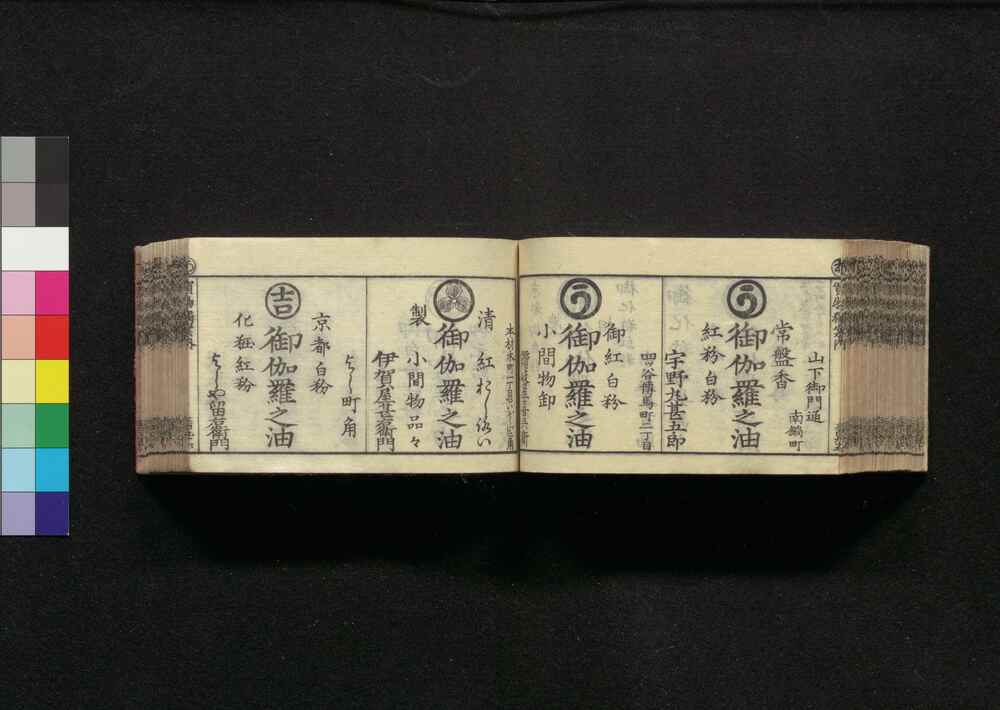 山下御門通
南鍋町
常盤香
御伽羅之油
紅粉白粉
宇野丸甚五郎
四ツ谷傳馬町二丁目
御紅白粉
う
御伽羅之油
小間物卸
清
紅おしろい
御伽羅之油
製
小間物品々
伊賀屋甚右衛門
よし町角
京都白粉
吉
御伽羅之油
化粧紅粉
よしや留右衛門